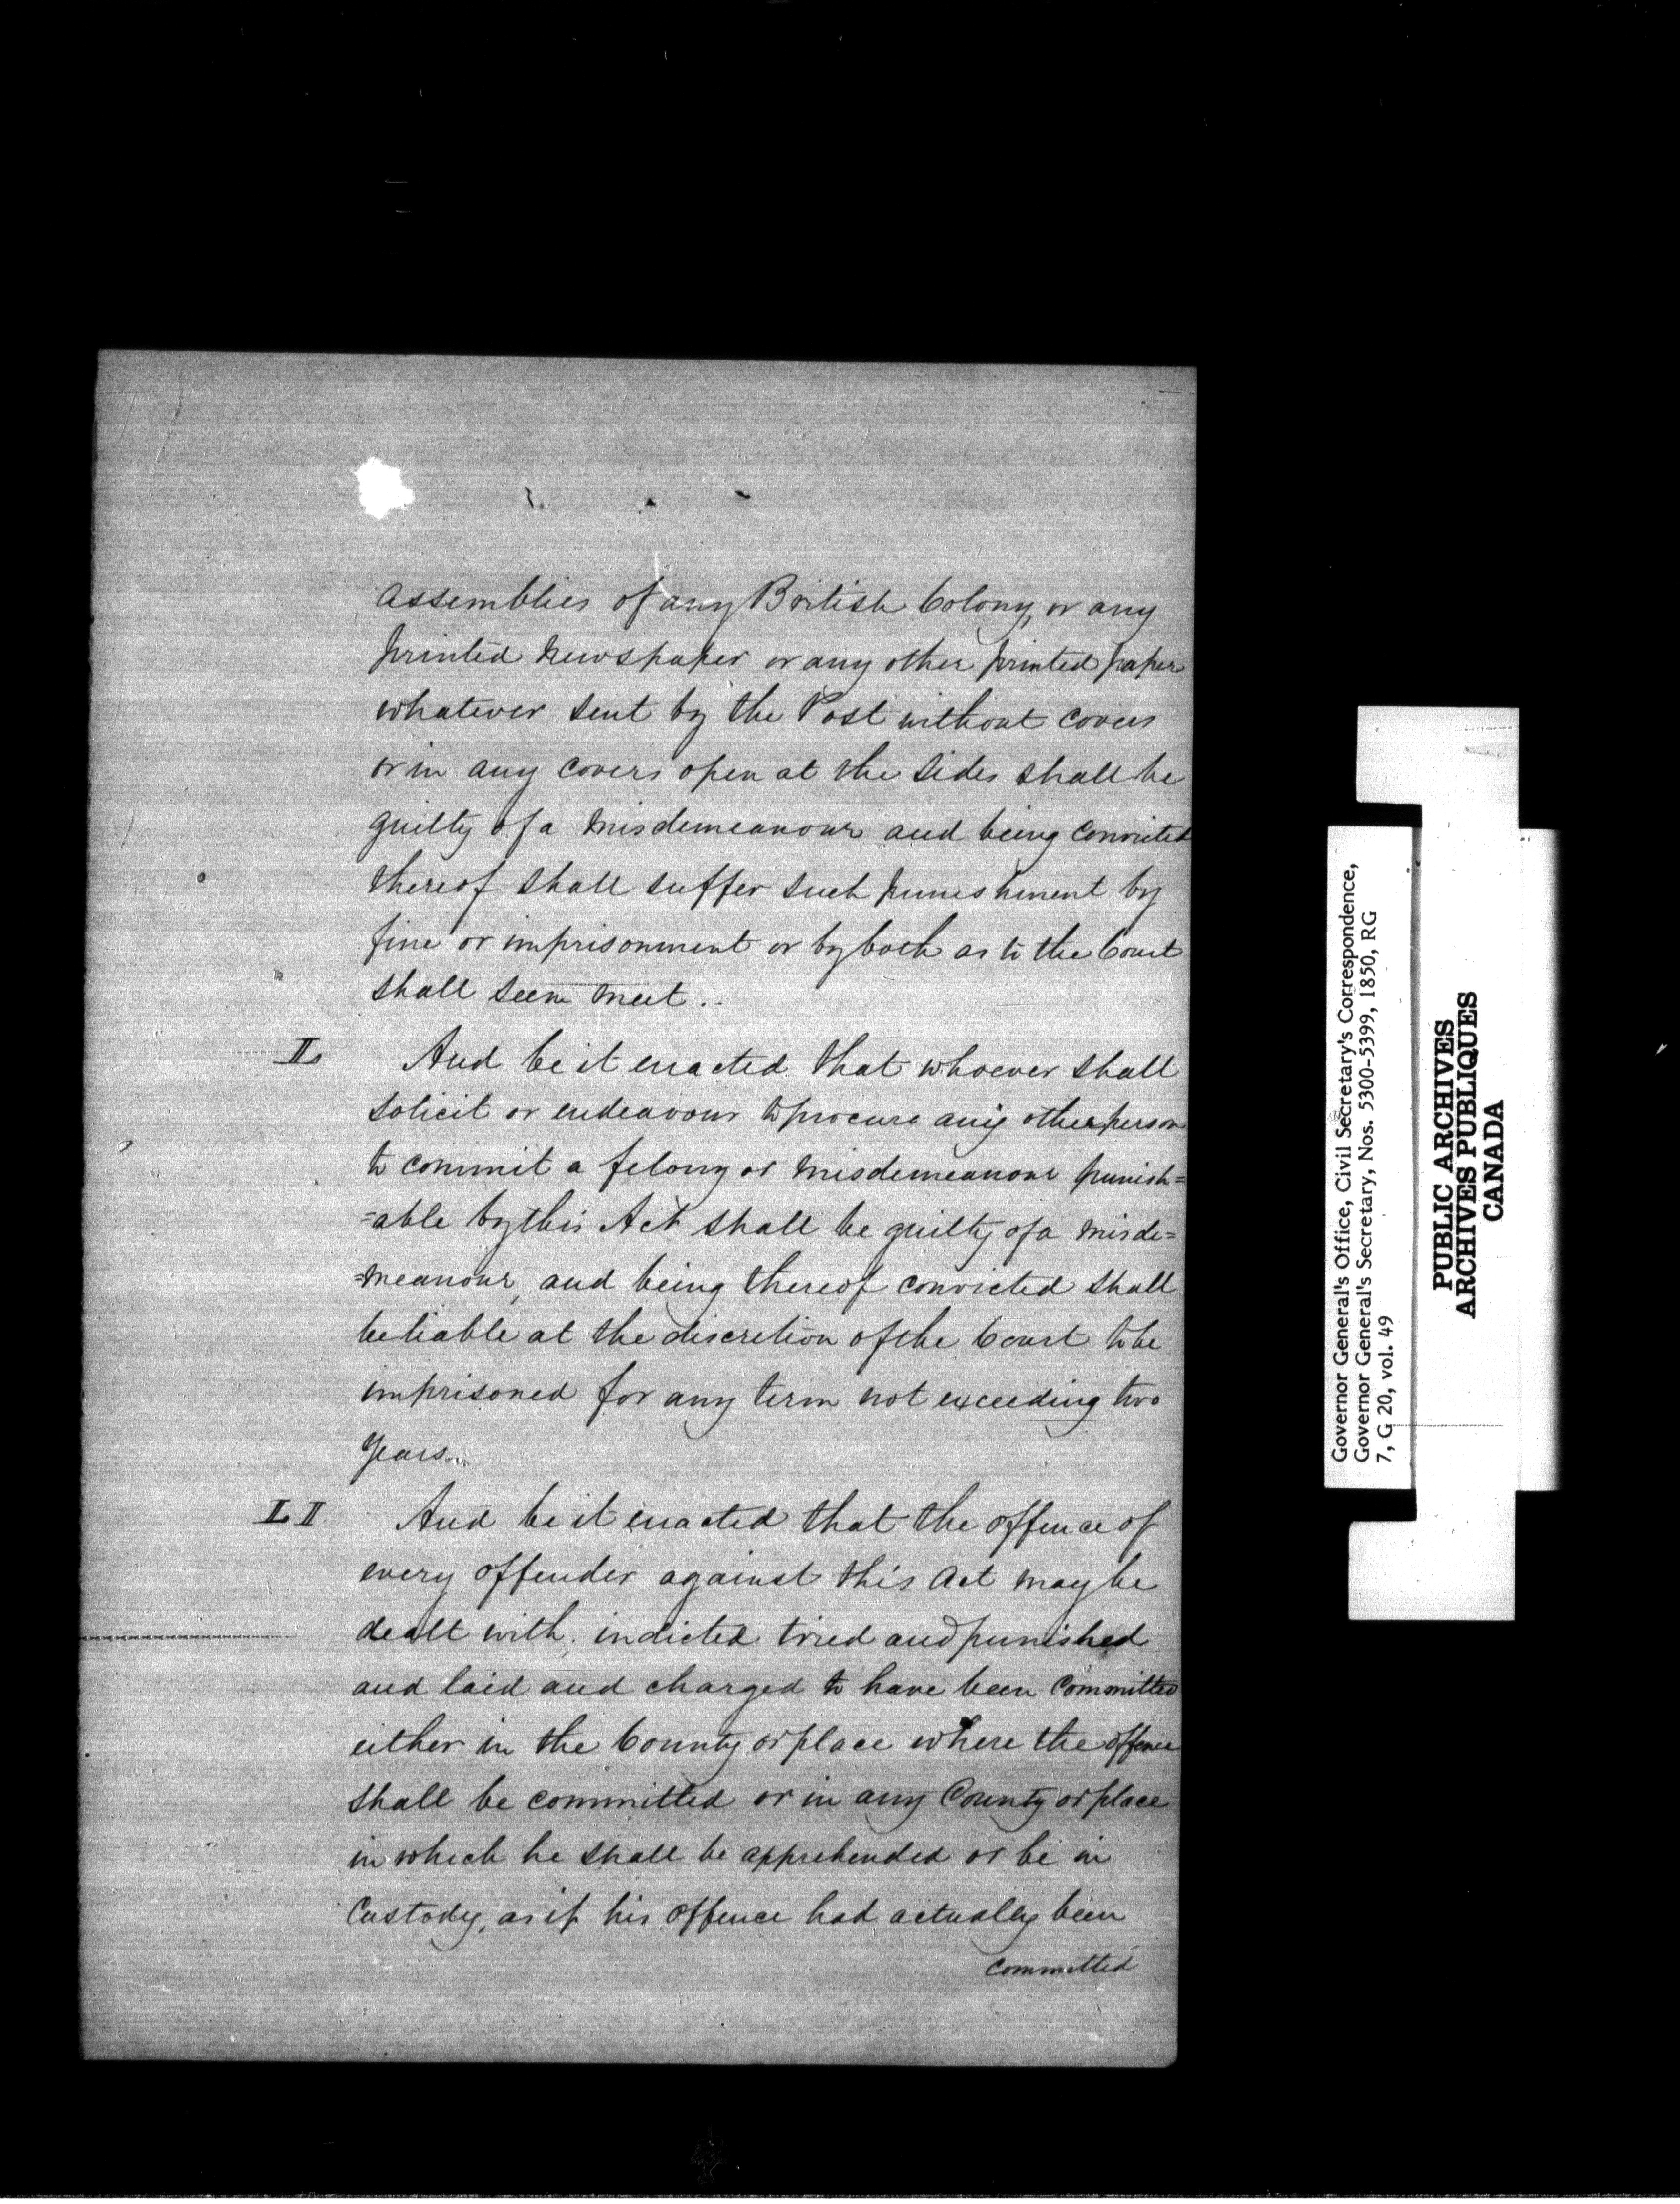 assemblies of any British Colony, or any
printed Newspaper or any other printed paper
whatever sent by the Post without covers
or in any covers open at the sides shall be
guilty of a misdemeanour and being convicted
thereof shall suffer such punishment by
fine or imprisonment or by both as to the Court
shall seem meet.
L And be it enacted that whoever shall
solicit or endeavour to procure any other person
to commit a felony or misdemeanour punish=
=able by this Act shall be guilty of a misde=
=meanour, and being thereof convicted shall
be liable at the discretion of the Court to be
imprisoned for any term not exceeding two
years.
LI And be it enacted that the offence of
every offender against this Act may be
dealt with, indicted tried and punished
and laid and charged to have been committed
either in the County or place where the offence
shall be committed or in any County or place
in which he shall be apprehended or be in
Custody, as if his offence had actually been
committed
Governor General's Office, Civil Secretary's Correspondence,
Governor General's Secretary, Nos. 5300-5399, 1850, RG
7, G 20, vol. 49
PUBLIC ARCHIVES
ARCHIVES PUBLIQUES
CANADA